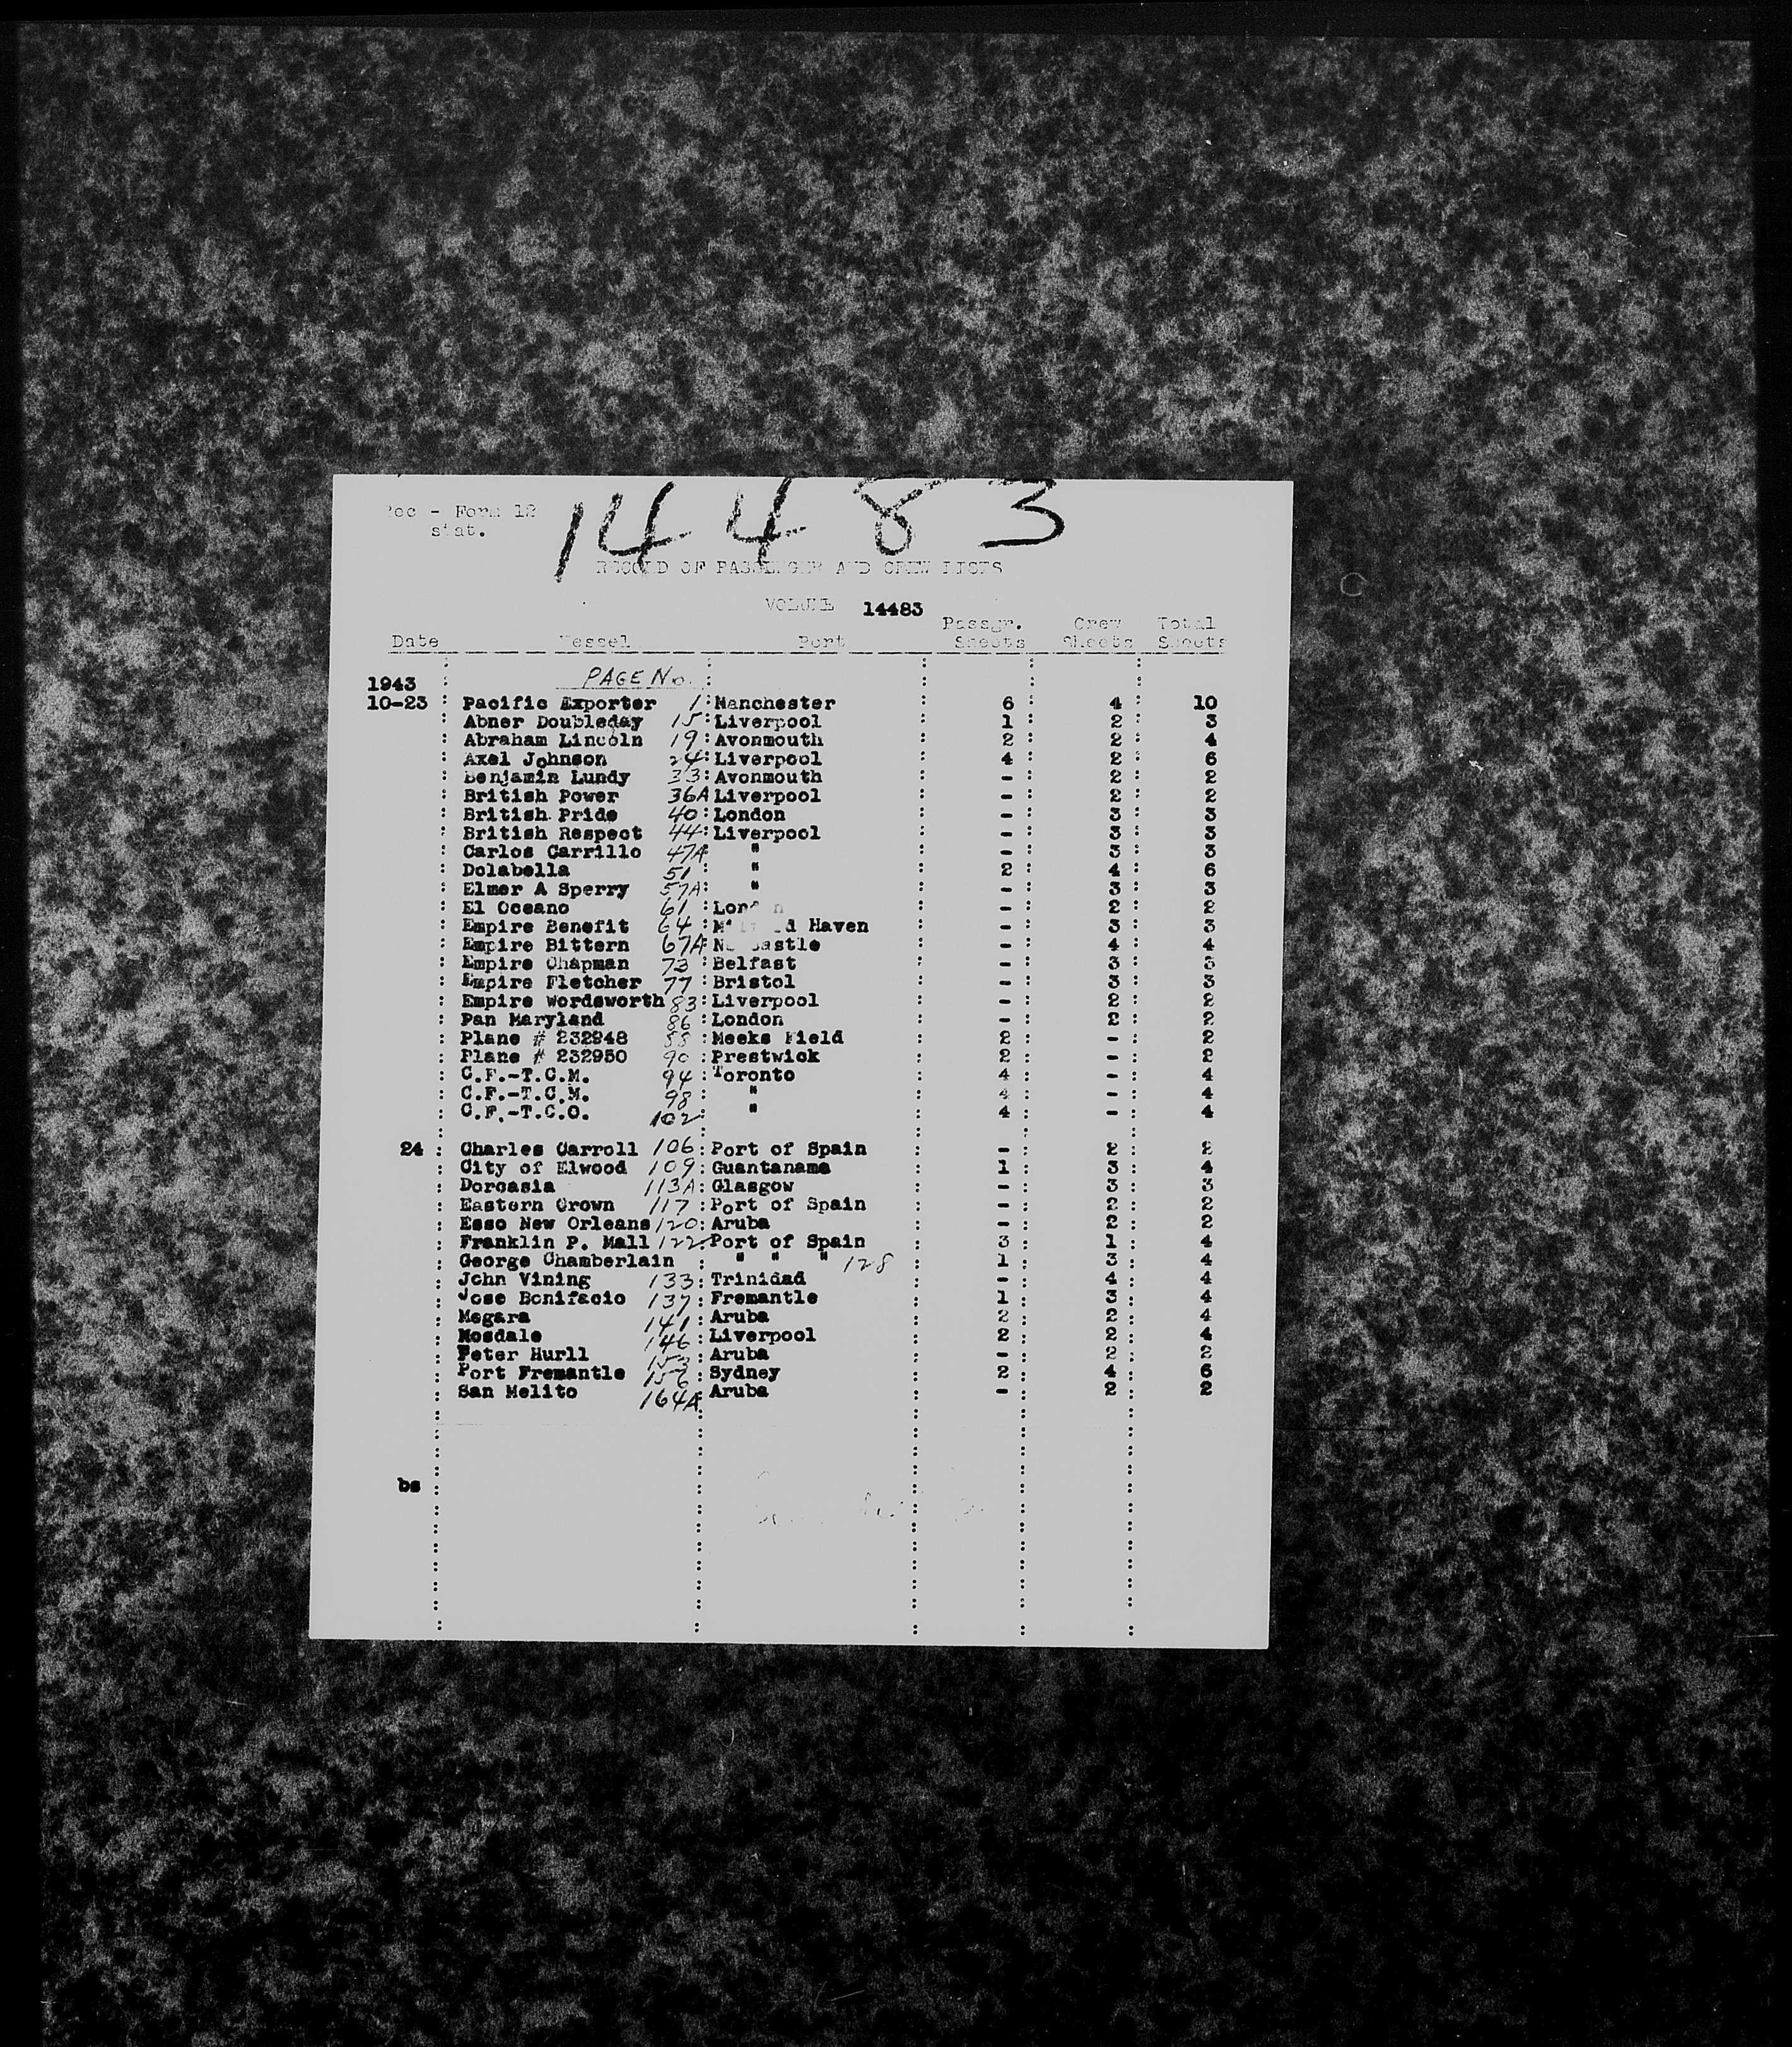 14483
Rec - Form 12
stat.
RECORD OF PASSENGER AND CREW LISTS
VOLUME 14483
Date Vessel Port Passgr. Sheets Crew Sheets Total Sheets
PAGE No.
1943
10-23 : Pacific Exporter 1 : Manchester : 6 : 4 : 10
: Abner Doubleday 15 : Liverpool : 1 : 2 : 3
: Abraham Lincoln 19 : Avonmouth : 2 : 2 : 4
: Axel Johnson 24 : Liverpool : 4 : 2 : 6
: Benjamin Lundy 33 : Avonmouth : - : 2 : 2
: British Power 36A Liverpool : - : 2 : 2
: British Pride 40 : London : - : 3 : 3
: British Respect 44 : Liverpool : - : 3 : 3
: Carlos Carrillo 47A : " : - : 3 : 3
: Dolabella 51 : " : 2 : 4 : 6
: Elmer A Sperry 57A : " : - : 3 : 3
: El Oceano 61 : London : - : 2 : 2
: Empire Benefit 64 : Milford Haven : - : 3 : 3
: Empire Bittern 67A : Newcastle : - : 4 : 4
: Empire Chapman 73 : Belfast : - : 3 : 3
: Empire Fletcher 77 : Bristol : - : 3 : 3
: Empire Wordsworth 83 : Liverpool : - : 2 : 2
: Pan Maryland 86 : London : - : 2 : 2
: Plane # 232948 88 : Meeks Field : 2 : - : 2
: Plane # 232950 90 : Prestwick : 2 : - : 2
: C.F.-T.C.M. 94 : Toronto : 4 : - : 4
: C.F.-T.C.M. 98 : " : 4 : - : 4
: C.F.-T.C.O. 102 : " : 4 : - : 4
24 : Charles Carroll 106 : Port of Spain : - : 2 : 2
: City of Elwood 109 : Guantanama : 1 : 3 : 4
: Dorcasia 113A : Glasgow : - : 3 : 3
: Eastern Crown 117 : Port of Spain : - : 2 : 2
: Esso New Orleans 120 : Aruba : - : 2 : 2
: Franklin P. Mall 122 : Port of Spain : 3 : 1 : 4
: George Chamberlain : " " " 128 1 : 3 : 4
: John Vining 133 : Trinidad : - : 4 : 4
: Jose Bonifacio 137 : Fremantle : 1 : 3 : 4
: Megara 141 : Aruba : 2 : 2 : 4
: Mosdale 146 : Liverpool : 2 : 2 : 4
: Peter Hurll 153 : Aruba : - : 2 : 2
: Port Fremantle 156 : Sydney : 2 : 4 : 6
: San Melito 164A : Aruba : - : 2 : 2
bs